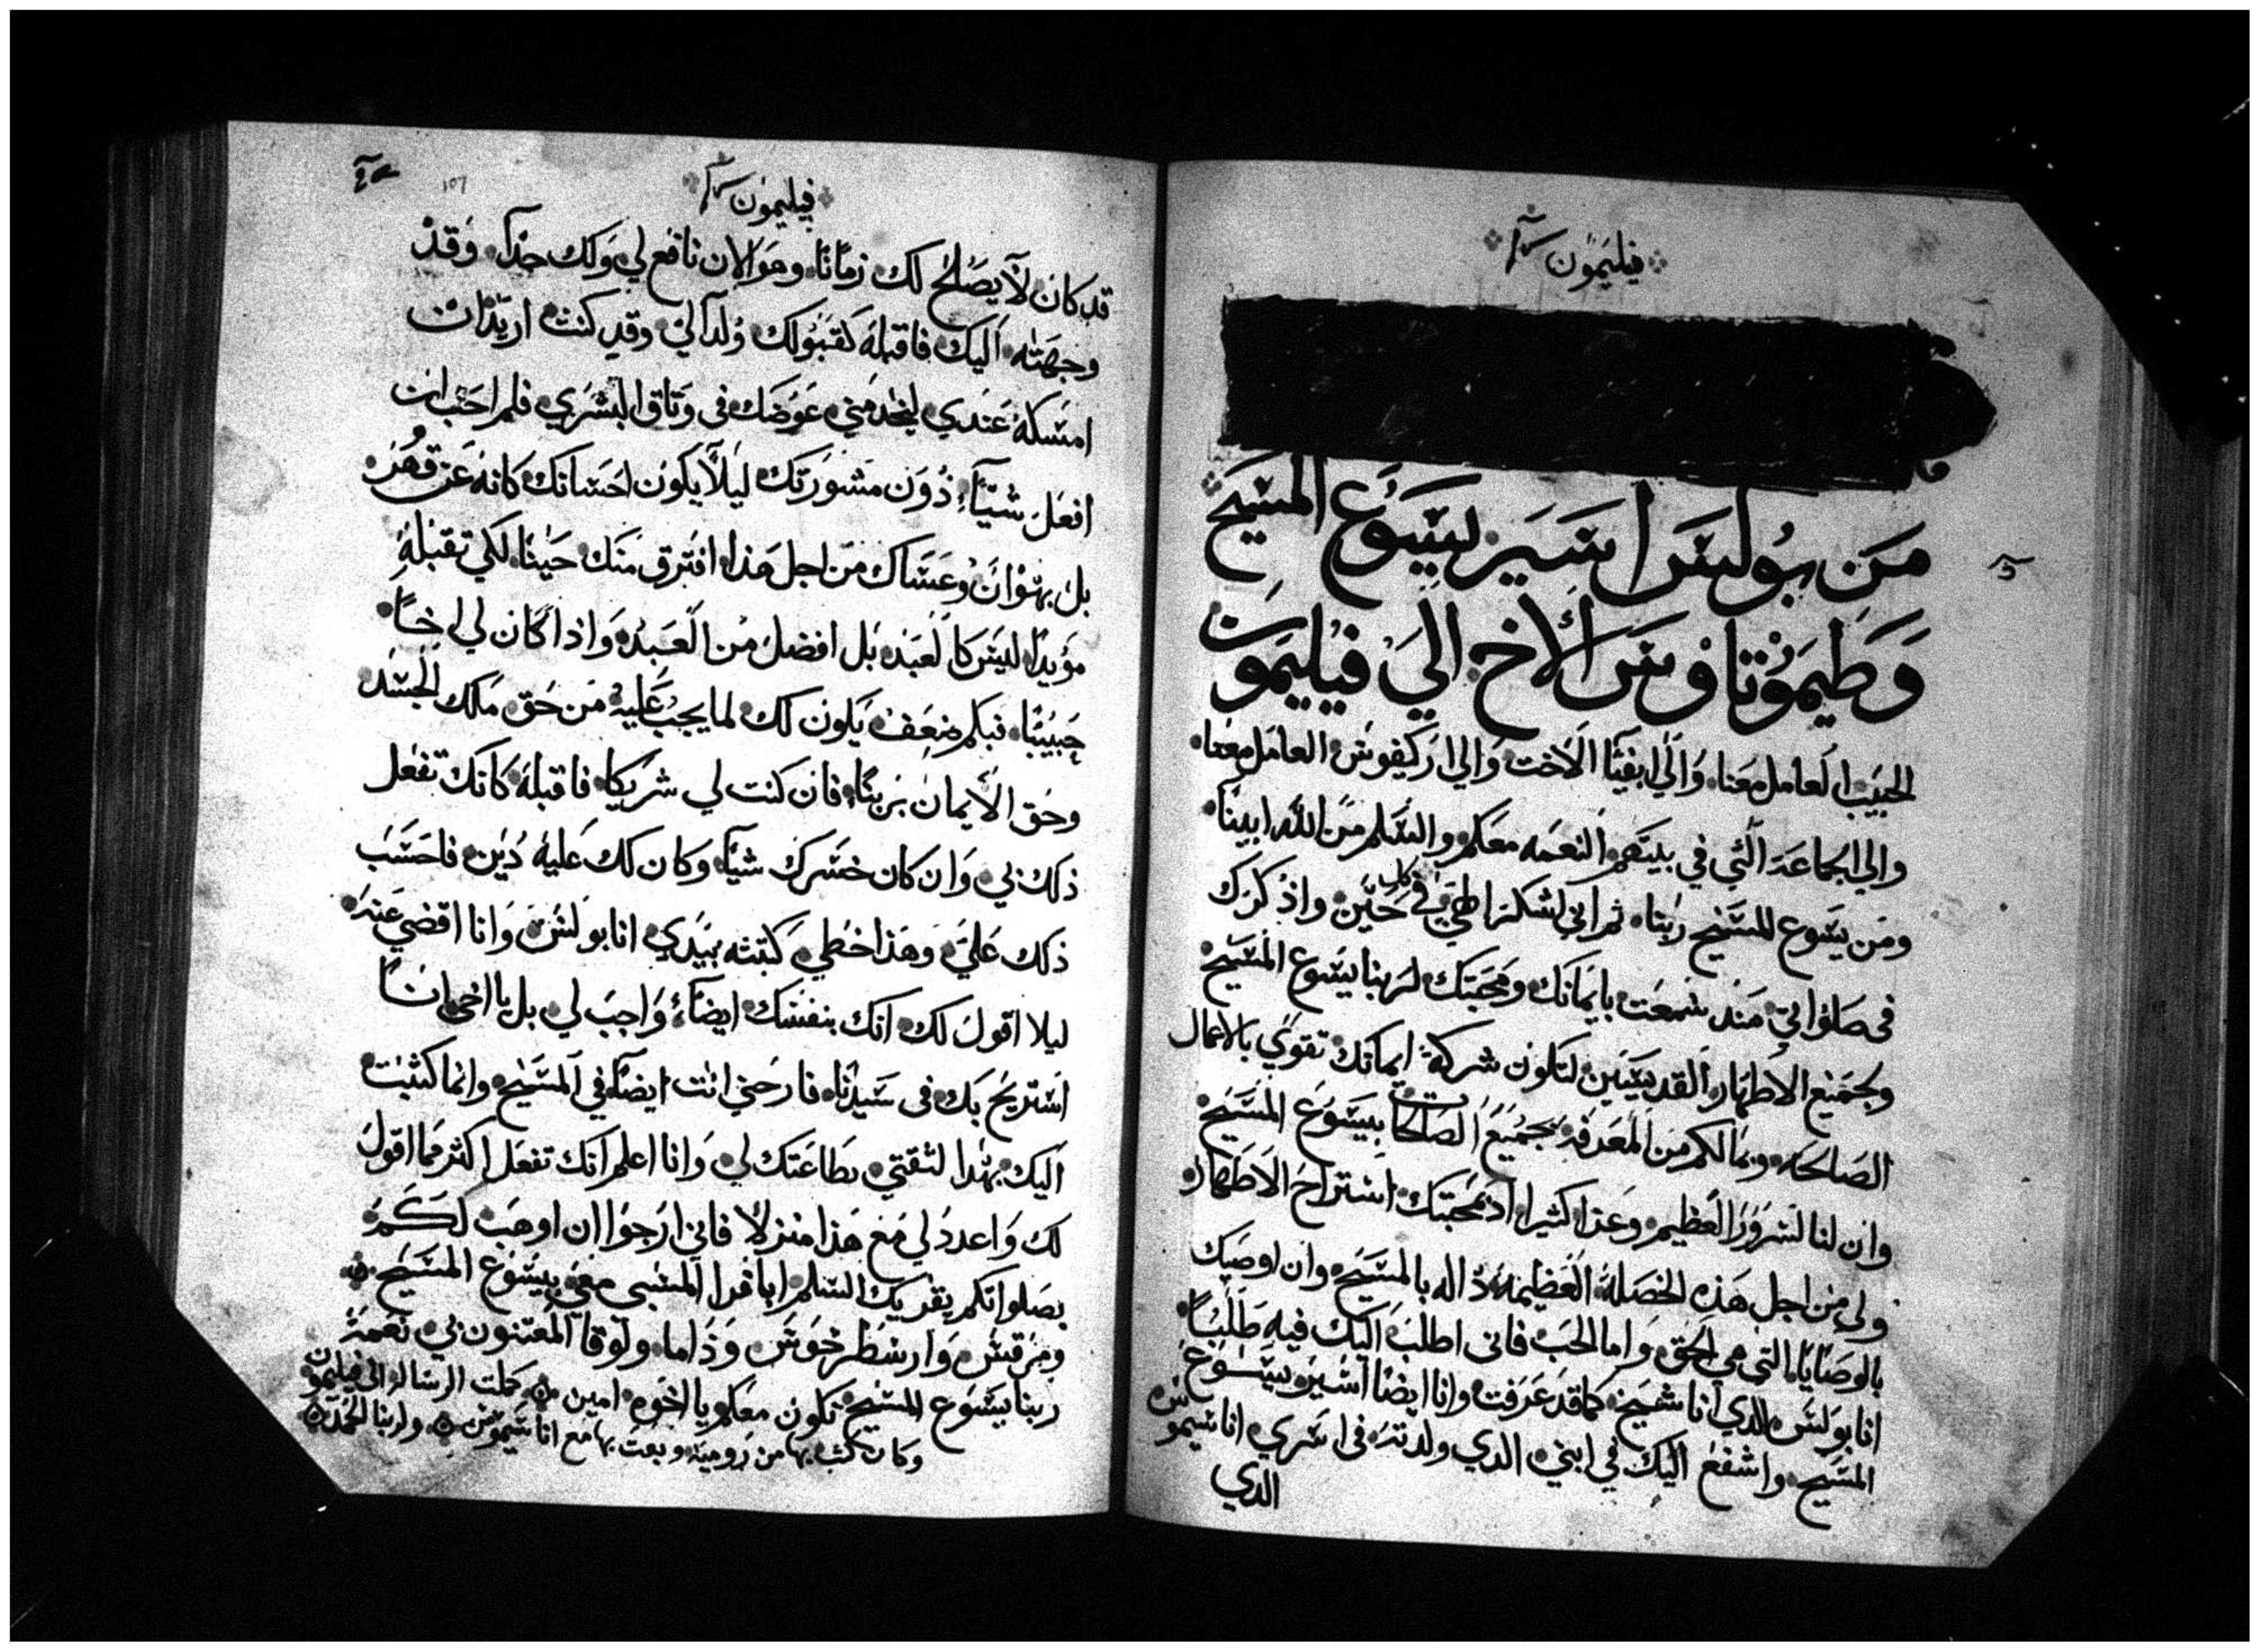 فيليمون
من بولس اسير يسوع المسيح
وطيموتاوس الاخ الي فيليمون
الحبيب العامل معنا والي ابفيا الاخت والي اركيفوس العامل معنا
والي الجماعة التي في بيتهم النعمه معكم والسلم من الله ابينا
ومن يسوع المسيح ربنا ثم اني اشكر الهي في كل حين واذكرك
في صلواتي منذ سمعت بايمانك ومحبتك لربنا يسوع المسيح
وبجميع الاطهار القديسين لتكون شركة ايمانك تقوي بالاعمال
الصالحه وبمالكم من المعرفه بجميع الصالحات بيسوع المسيح
وان لنا لسرورا العظيم وعزا كثيرا اذ بمحبتك استراح الاطهار
ولي من اجل هذه الخصلة العظيمة داله بالمسيح وان اوصيك
بالوصايا التي هي الحق واما الحب فاني اطلب اليك فيه طلبا
انا بولس الدي انا شيخ كما قد عرفت وانا ايضا اسير يسوع
المسيح واشفع اليك في ابني الدي ولدته في اسري اناسيموس
الدي
فيليمون
قد كان لا يصلح لك زمانا وهو الان نافع لي ولك جدا وقد
وجهته اليك فاقبله كقبولك ولدا لي وقد كنت اريد ان
امسكه عندي ليخدمني عوضك في وتاق البشري فلم احب ان
افعل شيا دون مشورتك ليلا يكون احسانك كانه عن قهر
بل بهوان وعساك من اجل هذا افترق منك حينا لكي تقبله
مؤيدا ليس كالعبد بل افضل من العبد واذا كان لي اخا
حبيبا فبكم ضعف يكون لك لما يجب عليه من حق ملك الجسد
وحق الايمان بربنا فان كنت لي شريكا فاقبله كانك تفعل
ذلك بي وان كان خسرك شيا وكان لك عليه دين فاحسب
ذلك علي وهذا خطي كتبته بيدي انا بولس وانا اقضي عنه
ليلا اقول لك انك بنفسك ايضا واجب لي بل يا اخي انا
استريح بك في سيدنا فارحني انت ايضا في المسيح وانما كتبت
اليك بهدا لتقتي بطاعتك لي وانا اعلم انك تفعل اكثر مما اقول
لك واعدد لي مع هذا منزلا فاني ارجوا ان اوهب لكم
بصلواتكم يقريك السلم ابافرا المسبي معي بيسوع المسيح
ومرقس وارسطرخوس وداما ولوقا المعتنون بي نعمة
ربنا يسوع المسيح تكون معكم يا اخوه امين كملت الرساله الى فيليمون
وكان كتب بها من رومية وبعت بها مع اناسيموس ولربنا الحمد